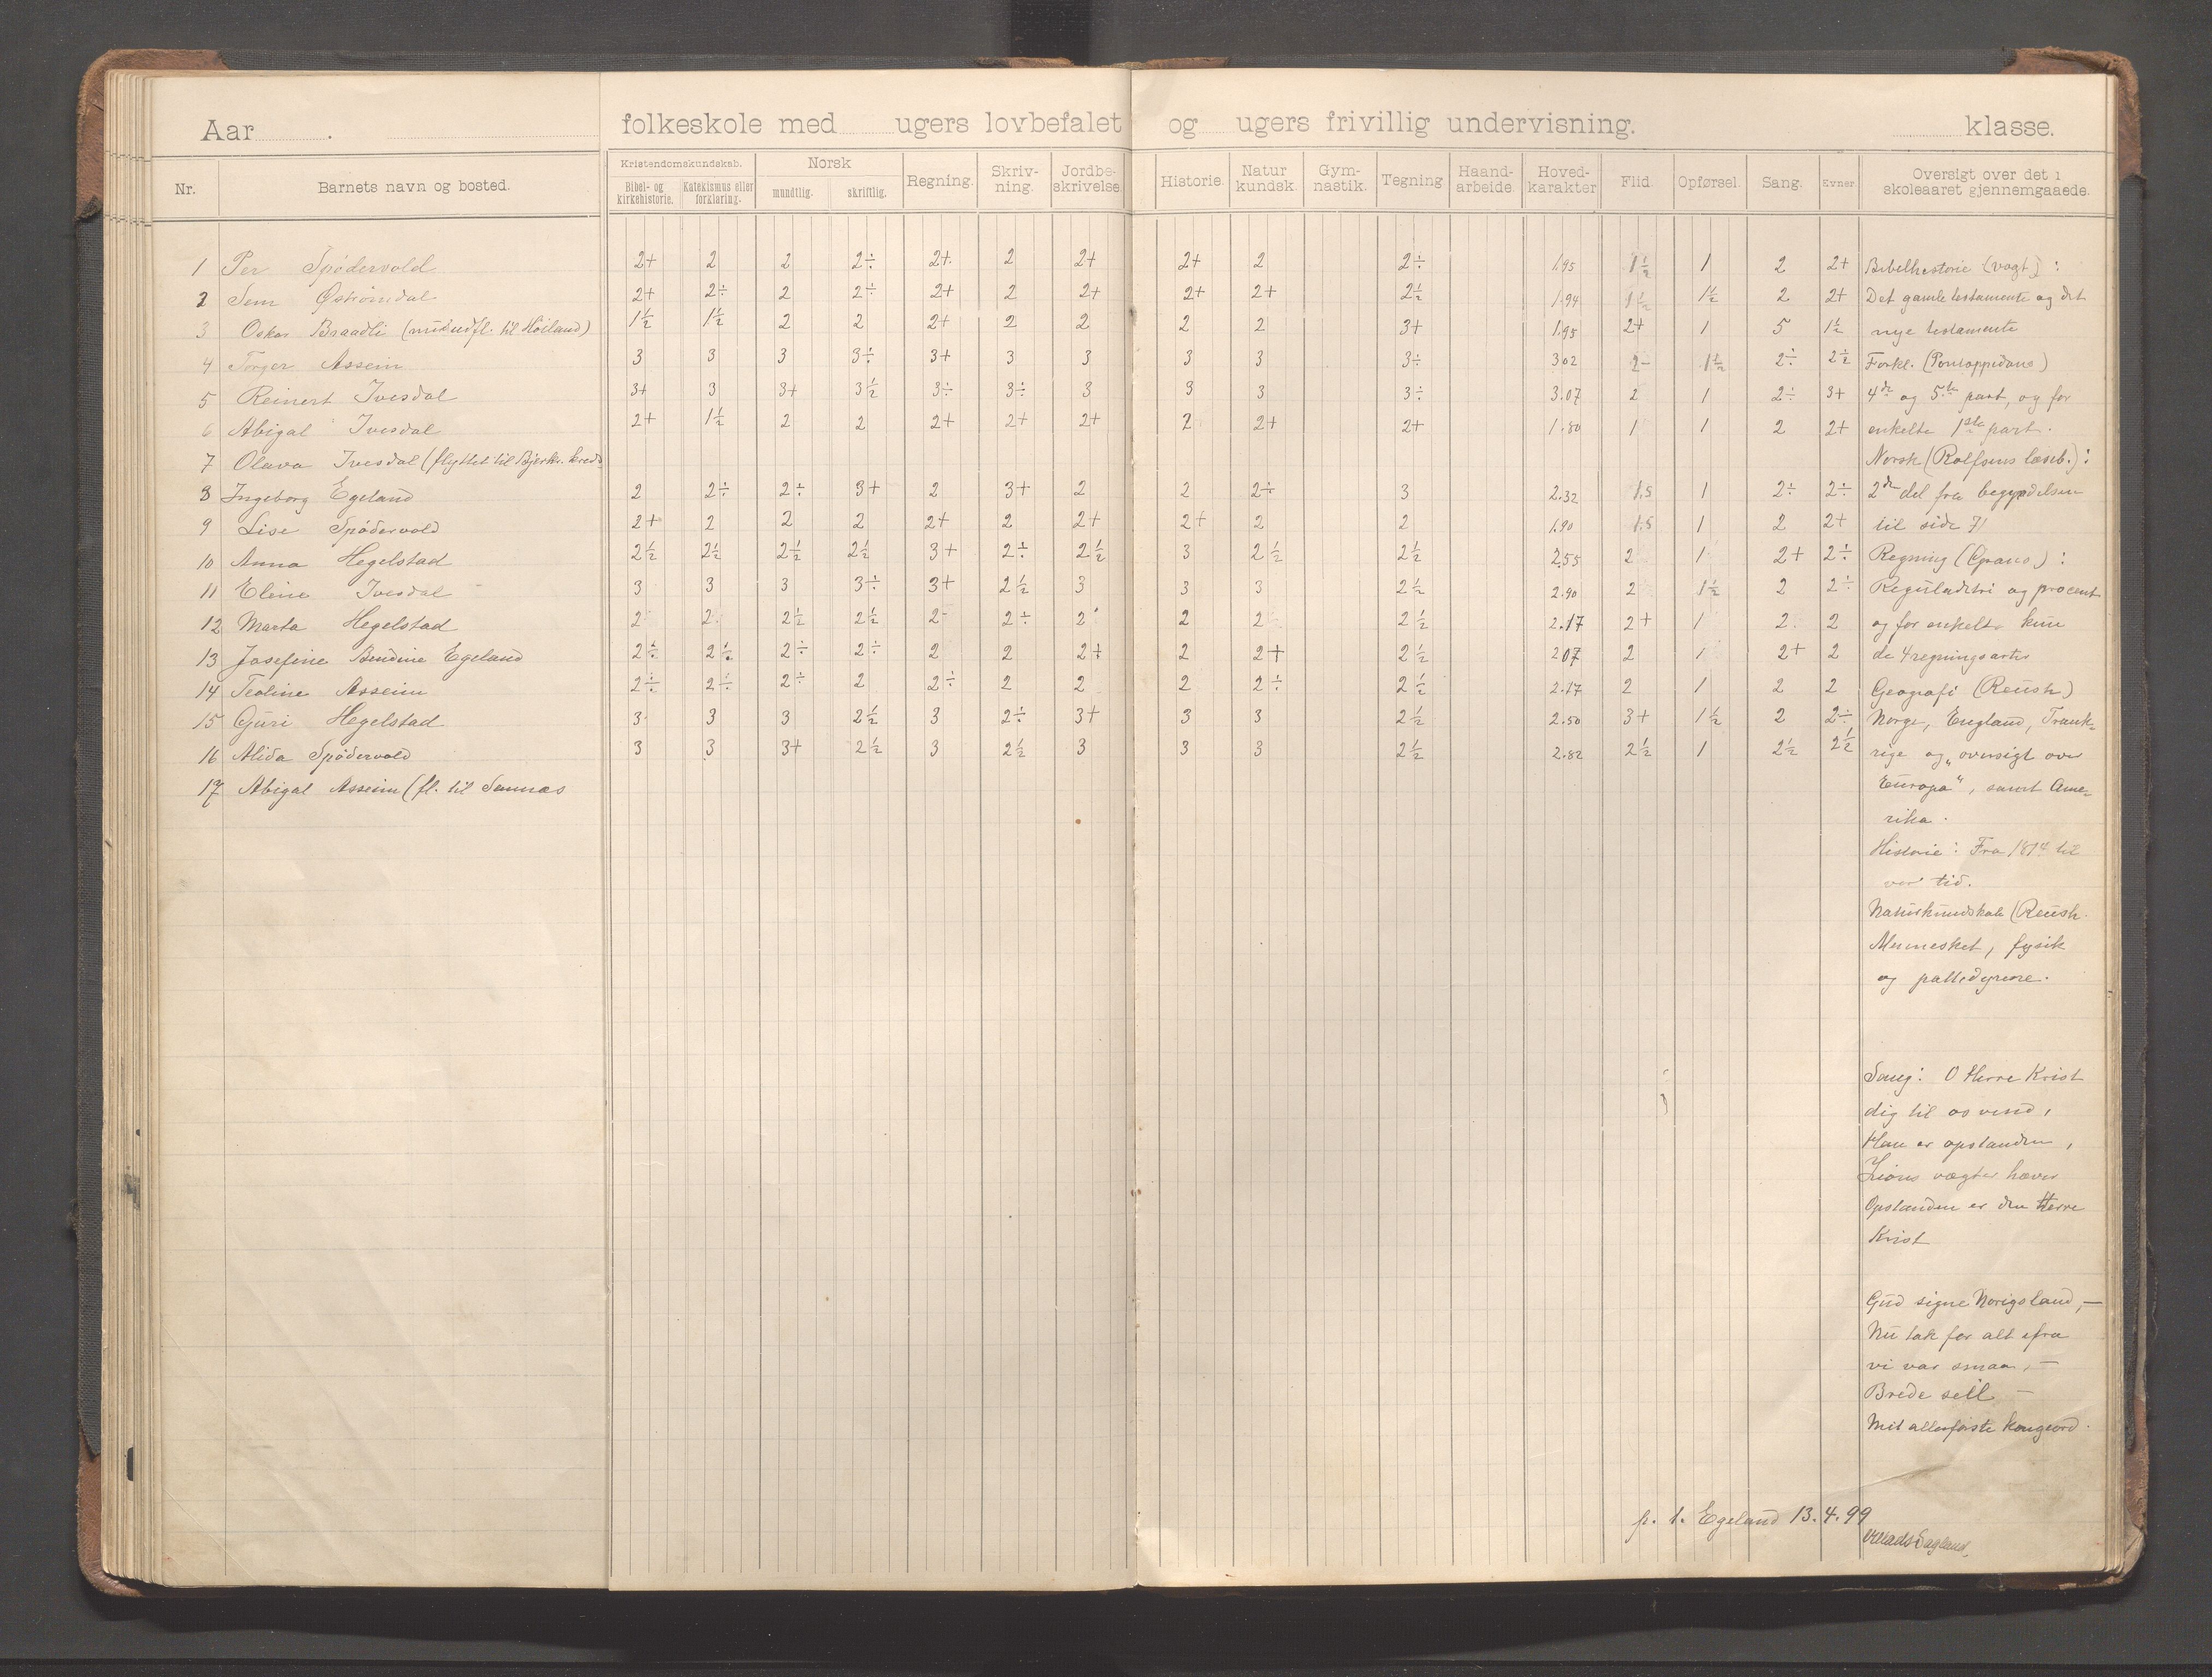 Aar . folkeskole med ugers lovbefalet og ugers frivillig undervisning. klasse.
Nr. Barnets navn og bosted. Kristendomskundskab. Bibel- og kirkehistorie. Katekismus eller forklaring. Norsk mundtlig. skriftlig. Regning. Skriv-ning. Jordbe-skrivelse. Historie. Natur kundsk. Gym-nastik. Tegning Haand-arbeide. Hoved-karakter Flid. Opførsel. Sang. Evner Oversigt over det i skoleaaret gjennemgaaede.
1 Per Spødervold 2+ 2 2 2÷ 2+ 2 2+ 2+ 2 2÷ 1.95 1½ 1 2 2+ Bibelhistorie (Vogt):
2 Sem Østrømdal 2+ 2÷ 2 2÷ 2+ 2 2+ 2+ 2+ 2½ 1.94 1½ 1½ 2 2+ Det gamle testamente og det
3 Oskar Braadli (udfl. til Høiland) 1½ 1½ 2 2 2+ 2 2 2 2 3+ 1.95 2+ 1 5 1½ nye testamente
4 Torger Asseim 3 3 3 3÷ 3+ 3 3 3 3 3÷ 302 2- 1½ 2÷ 2½ Forkl. (Pontoppidans)
5 Reinert Ivesdal 3+ 3 3+ 3½ 3÷ 3÷ 3 3 3 3÷ 3.07 2 1 2÷ 3+ 4de og 5te part, og for
6 Abigal Ivesdal 2+ 1½ 2 2 2+ 2+ 2+ 2 2+ 2+ 1.80 1 1 2 2+ enkelte 1ste part.
7 Olava Ivesdal (flyttet til Bjerkr. kreds Norsk (Rolfsens læseb.):
8 Ingeborg Egeland 2 2÷ 2÷ 3+ 2 3+ 2 2 2÷ 3 2.32 1.5 1 2÷ 2÷ 2den del fra begyndelsen
9 Lise Spødervold 2+ 2 2 2 2+ 2 2+ 2+ 2 2 1.90 1.5 1 2 2+ til side 71
10 Anna Hegelstad 2½ 2½ 2½ 2½ 3+ 2÷ 2½ 3 2½ 2½ 2.55 2 1 2+ 2÷ Regning
11 Eline Ivesdal 3 3 3 3÷ 3+ 2½ 3 3 3 2½ 2.90 2 1½ 2 2÷ Reguladetri og procent
12 Marta Hegelstad 2 2 2½ 2½ 2- 2÷ 2 2 2 2½ 2.17 2+ 1 2 2 og for enkelte kun
13 Josefine Bendine Egeland 2÷ 2÷ 2÷ 2÷ 2 2 2+ 2 2+ 2½ 207 2 1 2+ 2 de 4 regningsarter
14 Teoline Asseim 2÷ 2÷ 2÷ 2 2÷ 2 2 2 2÷ 2½ 2.17 2 1 2 2 Geografi (Reusch)
15 Guri Hegelstad 3 3 3 2½ 3 2÷ 3+ 3 3 2½ 2.50 3+ 1½ 2 2÷ Norge, England, Frank-
16 Alida Spødervold 3 3 3+ 2½ 3 2½ 3 3 3 2½ 2.82 2½ 1 2½ 2½ rige og „oversigt over
17 Abigal Asseim (fl. til Sannæs Europa", samt Ame-
rika.
Historie: Fra 1814 til
vor tid.
Naturkundskab (Reusch.
Mennesket, fysik
og pattedyrene.
Sang: O Herre Krist
dig til os vend,
Han er opstanden,
Zions vægter hæver
Opstanden er den Herre
Krist
Gud signe Norigsland, —
Nu tak for alt ifra
vi var smaa, —
Brede seil —
Mit allerførste kongeord.
p. t. Egeland 13.4.99
Egeland.